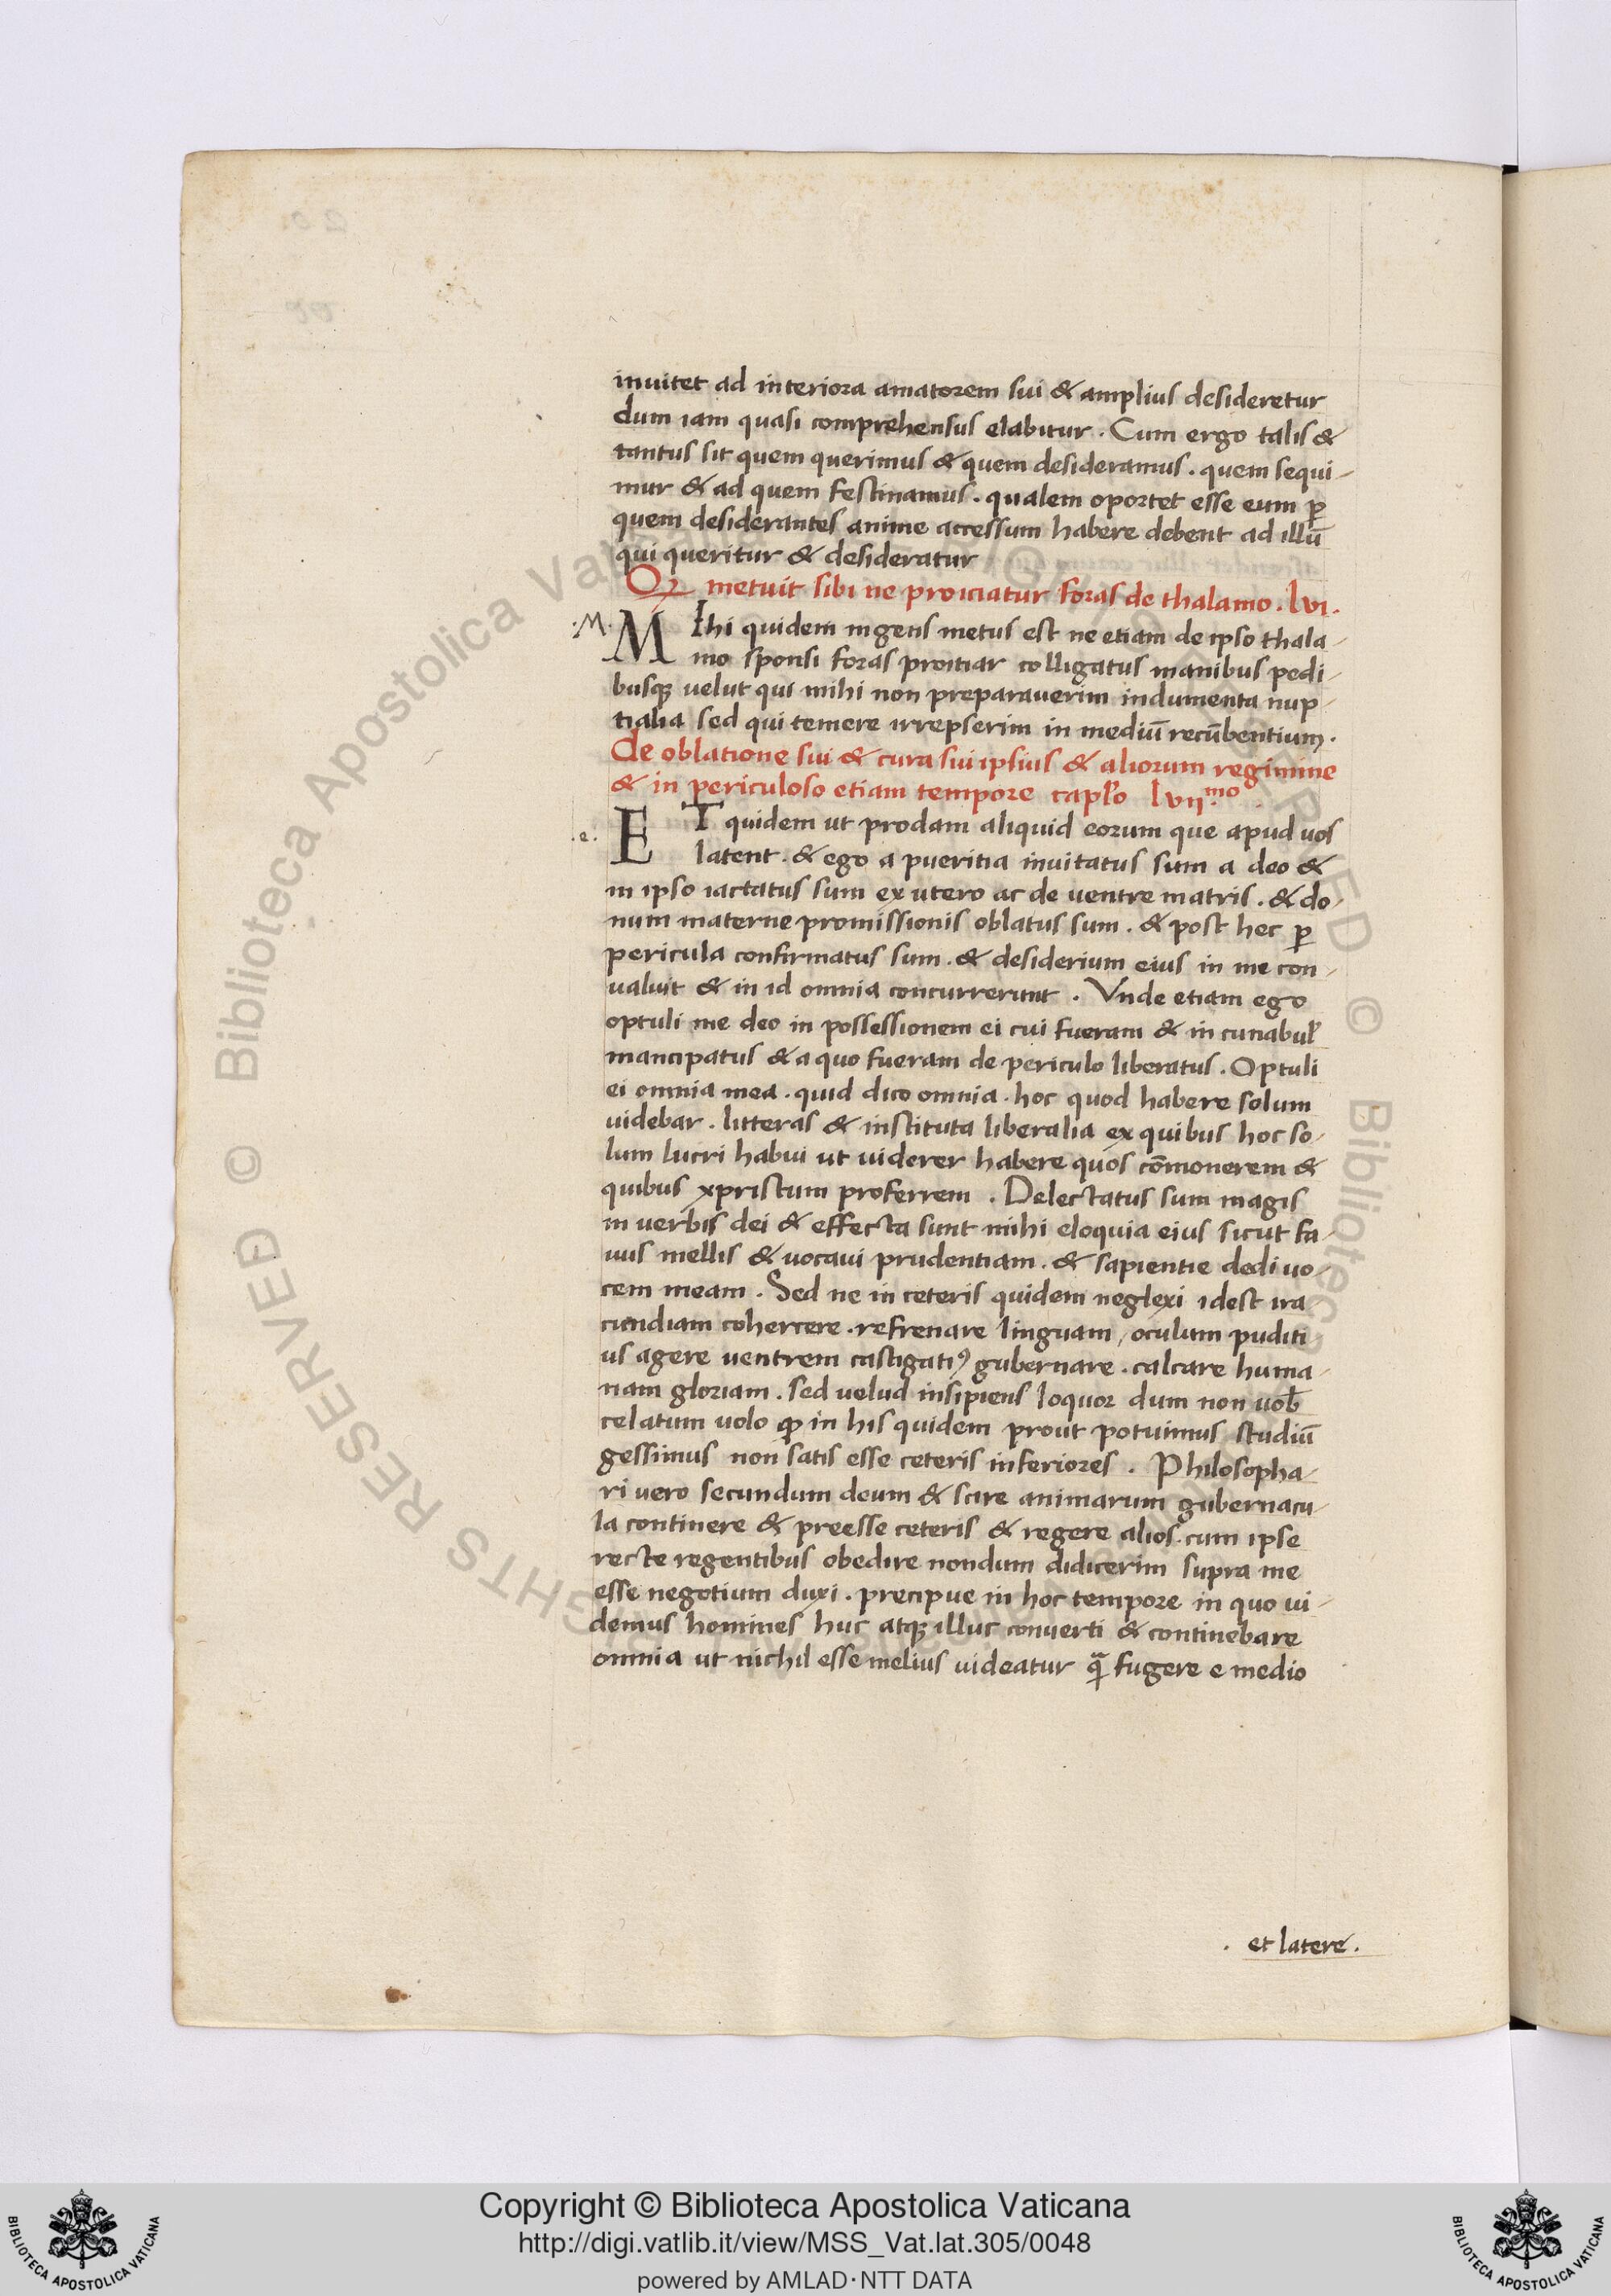 inuitet ad interiora amatorem sui & amplius desideretur
dum iam quasi comprehensus elabitur. Cum ergo talis &
tantus sit quem querimus & quem desideramus. quem sequi-
mur & ad quem festinamus. qualem oportet esse eum ꝑ
quem desiderantes anime accessum habere debent ad illū
qui queritur & desideratur
metuit sibi ne proiciatur foras de thalamo. lvi.
.M. MIhi quidem ingens metus est ne etiam de ipso thala-
mo sponsi foras proitiar colligatus manibus pedi-
busqꝫ uelut qui mihi non preparauerim indumenta nup-
tialia sed qui temere irrepserim in mediū recūbentium.
De oblatione sui & cura sui ipsius & aliorum regimine
& in periculoso etiam tempore capl'o lvii.mo
.e. ET quidem ut prodam aliquid eorum que apud uos
latent. & ego a pueritia inuitatus sum a deo &
in ipso iactatus sum ex utero ac de uentre matris. & do-
num materne promissionis oblatus sum. & post hec ꝑ
pericula confirmatus sum. & desiderium eius in me con-
ualuit & in id omnia concurrerunt. Vnde etiam ego
optuli me deo in possessionem ei cui fueram & in cunabul'
mancipatus & a quo fueram de periculo liberatus. Optuli
ei omnia mea. quid dico omnia. hoc quod habere solum
uidebar. litteras & instituta liberalia ex quibus hoc so-
lum lucri habui ut uiderer habere quos cōmonerem &
quibus xpristum proferrem. Delectatus sum magis
in uerbis dei & effecta sunt mihi eloquia eius sicut fa-
uus mellis & uocaui prudentiam. & sapientie dedi uo-
cem meam. Sed ne in ceteris quidem neglexi idest ira-
cundiam cohercere. refrenare linguam, oculum puditi
us agere uentrem castigatiꝰ gubernare. calcare huma-
nam gloriam. sed uelud insipiens loquor dum non uob̄
celatum uolo ꝙ in his quidem prout potuimus studiū
gessimus non satis esse ceteris inferiores. Philosopha-
ri uero secundum deum & scire animarum gubernacu-
la continere & preesse ceteris & regere alios. cum ipse
recte regentibus obedire nondum didicerim supra me
esse negotium duxi. precipue in hoc tempore in quo ui-
demus homines huc atqꝫ illuc conuerti & continebare
omnia ut nichil esse melius uideatur q̄ fugere e medio
. et latere.
© Biblioteca Apostolica Vaticana
ALL RIGHTS RESERVED
Copyright © Biblioteca Apostolica Vaticana
http://digi.vatlib.it/view/MSS_Vat.lat.305/0048
powered by AMLAD·NTT DATA
BIBLIOTECA APOSTOLICA VATICANA
BIBLIOTECA APOSTOLICA VATICANA